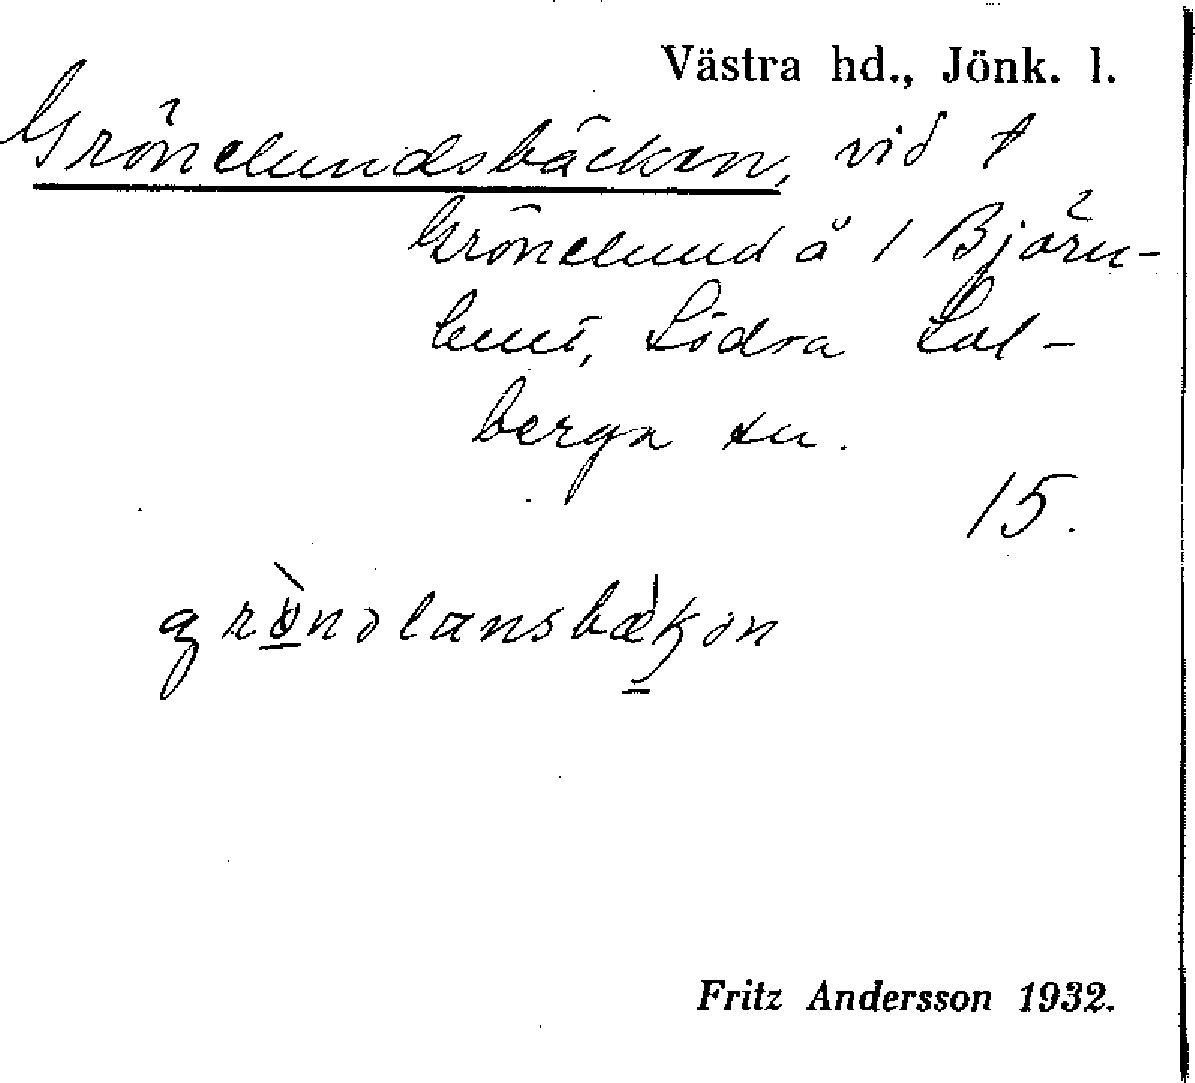 Västra hd., Jönk. l.
Grönelundsbäcken, vid †
Grönelund å 1 Björn-
hult, Södra Sol-
berga sn.
15.
Fritz Andersson 1932.